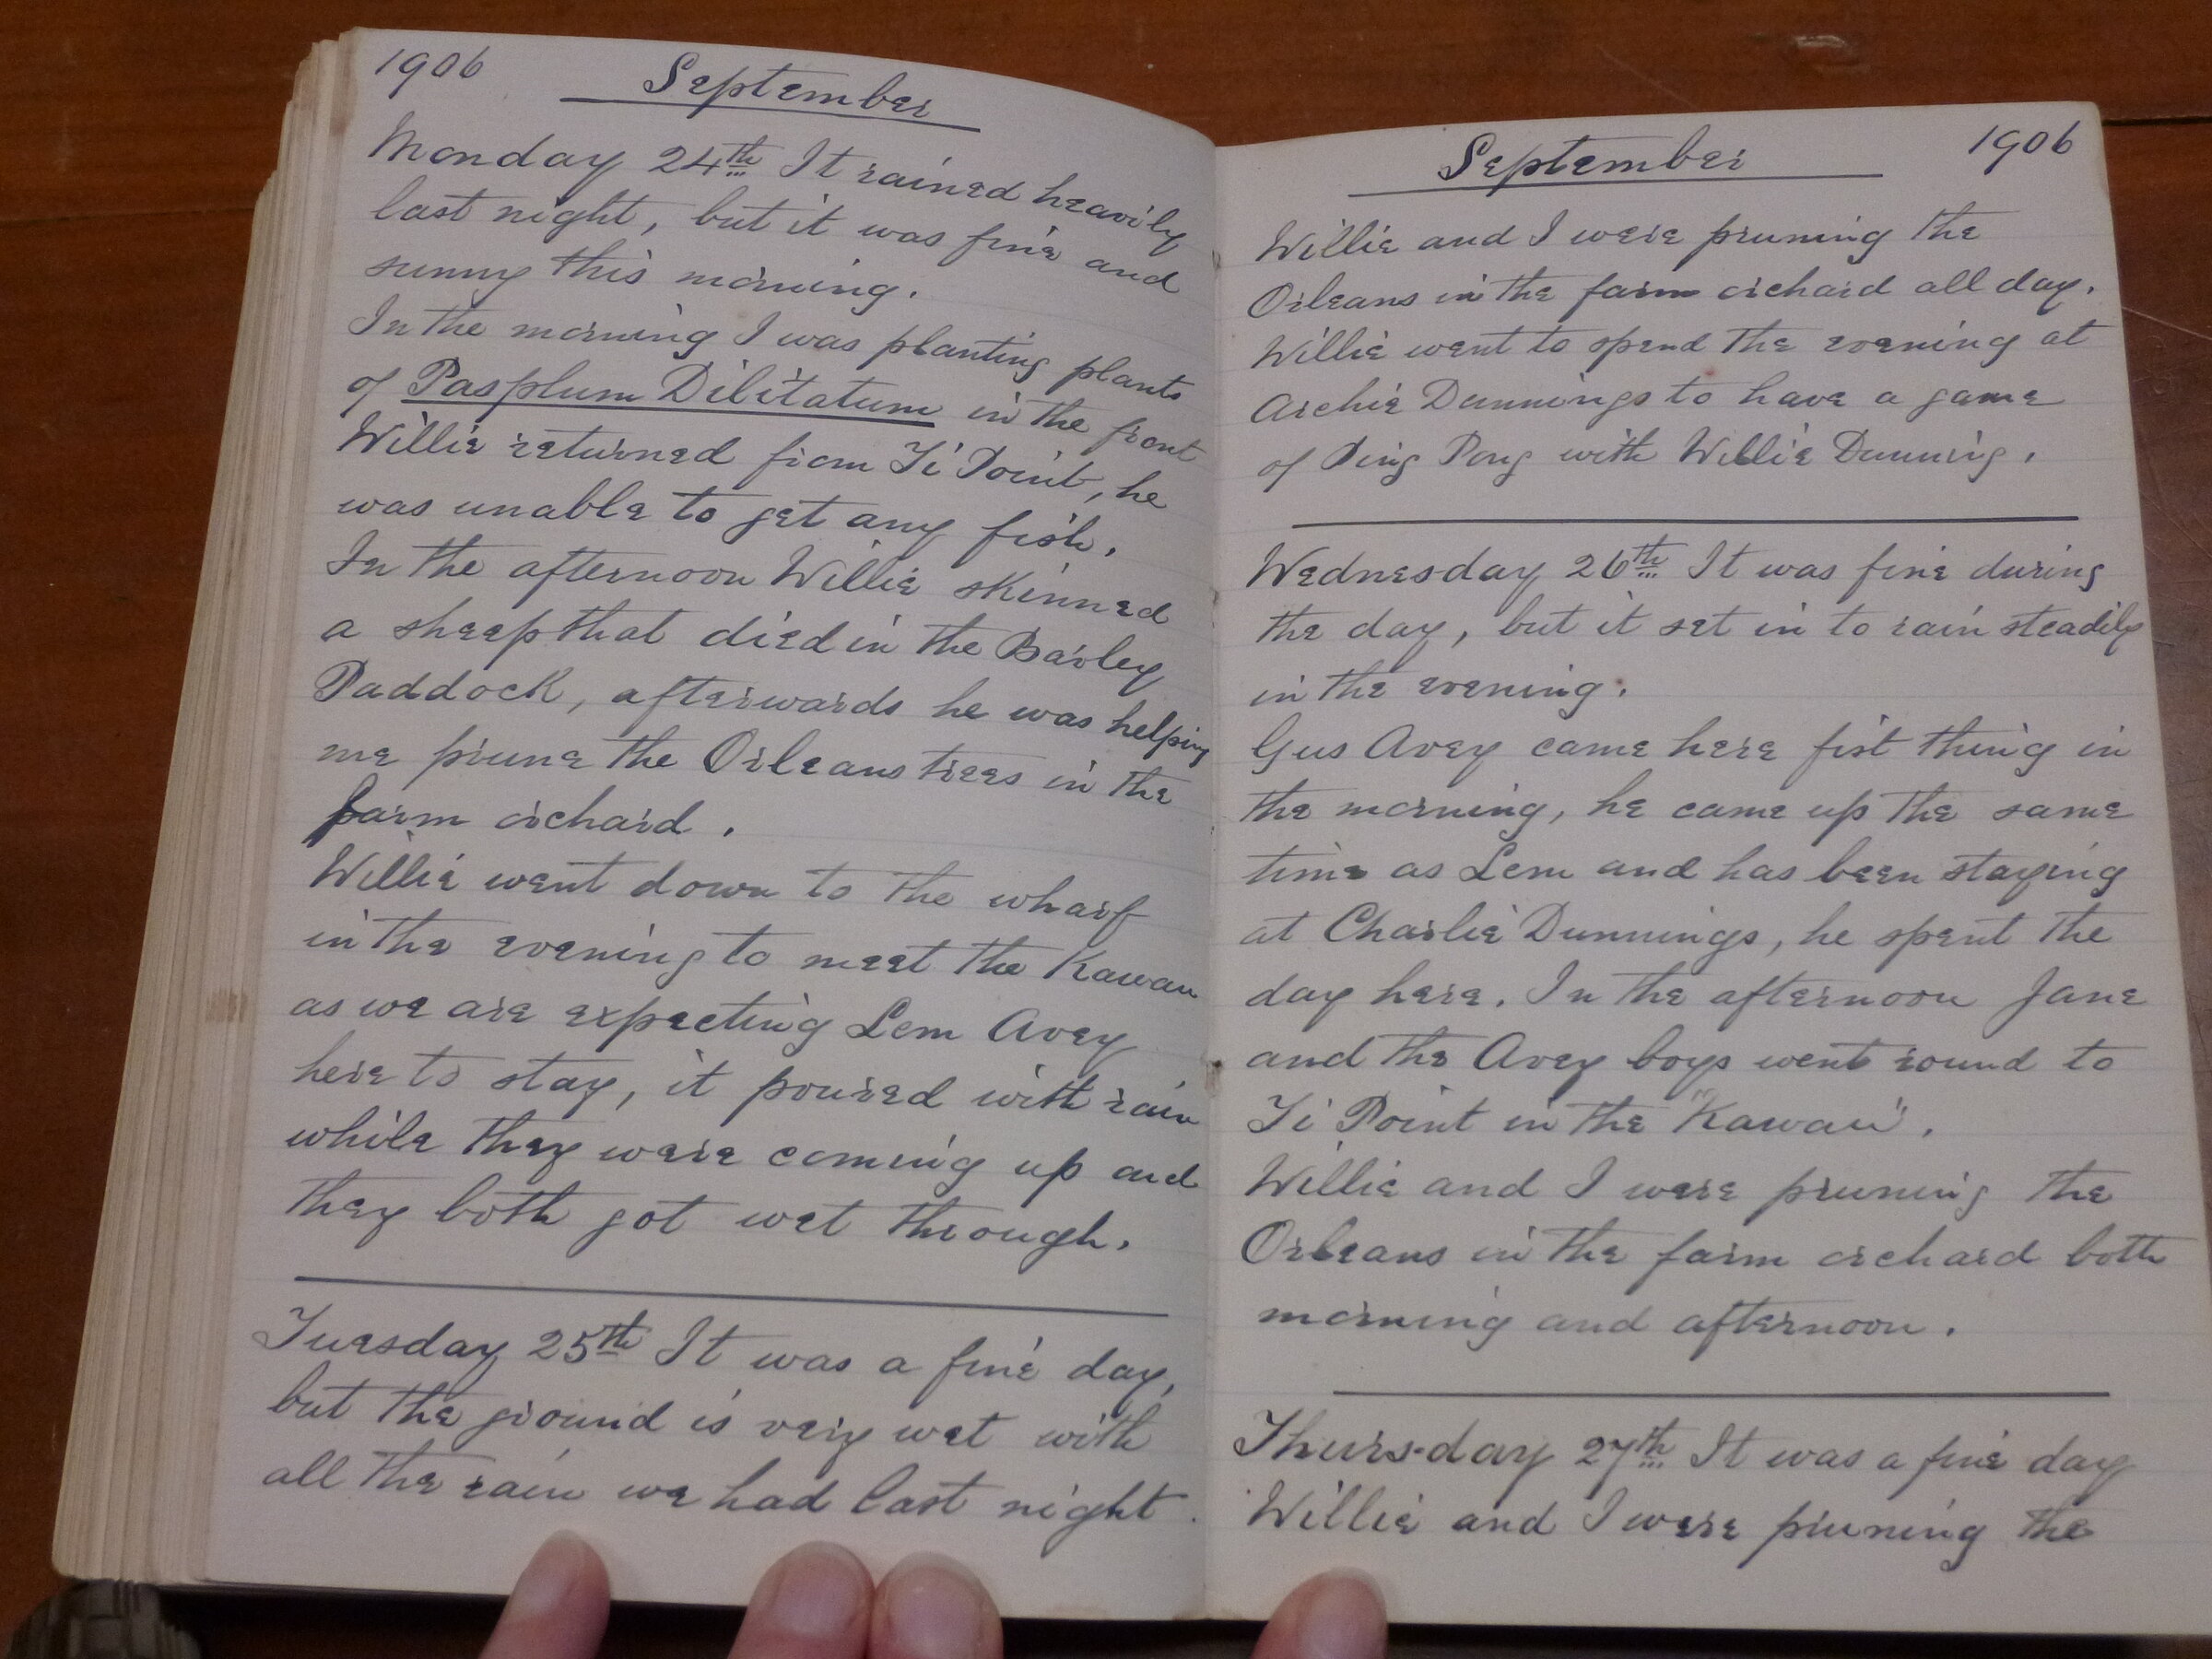 1906
September
Monday 24th It rained heavily
last night, but it was fine and
sunny this morning.
In the morning I was planting plants
of Pasplum Dilitatum in the front
Willie returned from Ti Point, he
was unable to get any fish.
In the afternoon Willie skinned
a sheep that died in the Barley
Paddock, afterwards he was helping
me prune the Orleans trees in the
farm orchard.
Willie went down to the wharf
in the evening to meet the Kawau
as we are expecting Lem Avey
here to stay, it poured with rain
while they were coming up and
they both got wet through.
Tuesday 25th It was a fine day,
but the ground is very wet with
all the rain we had last night.
September
1906
Willie and I were pruning the
Orleans in the farm orchard all day.
Willie went to spend the evening at
Archie Dunnings to have a game
of Ping Pong with Willie Dunning.
Wednesday 26th It was fine during
the day, but it set in to rain steadily
in the evening.
Gus Avey came here fist thing in
the morning, he came up the same
time as Lem and has been staying
at Charlie Dunnings, he spent the
day here. In the afternoon Jane
and the Avey boys went round to
Ti Point in the "Kawau".
Willie and I were pruning the
Orleans in the farm orchard both
morning and afternoon.
Thursday 27th It was a fine day
Willie and I were pruning the